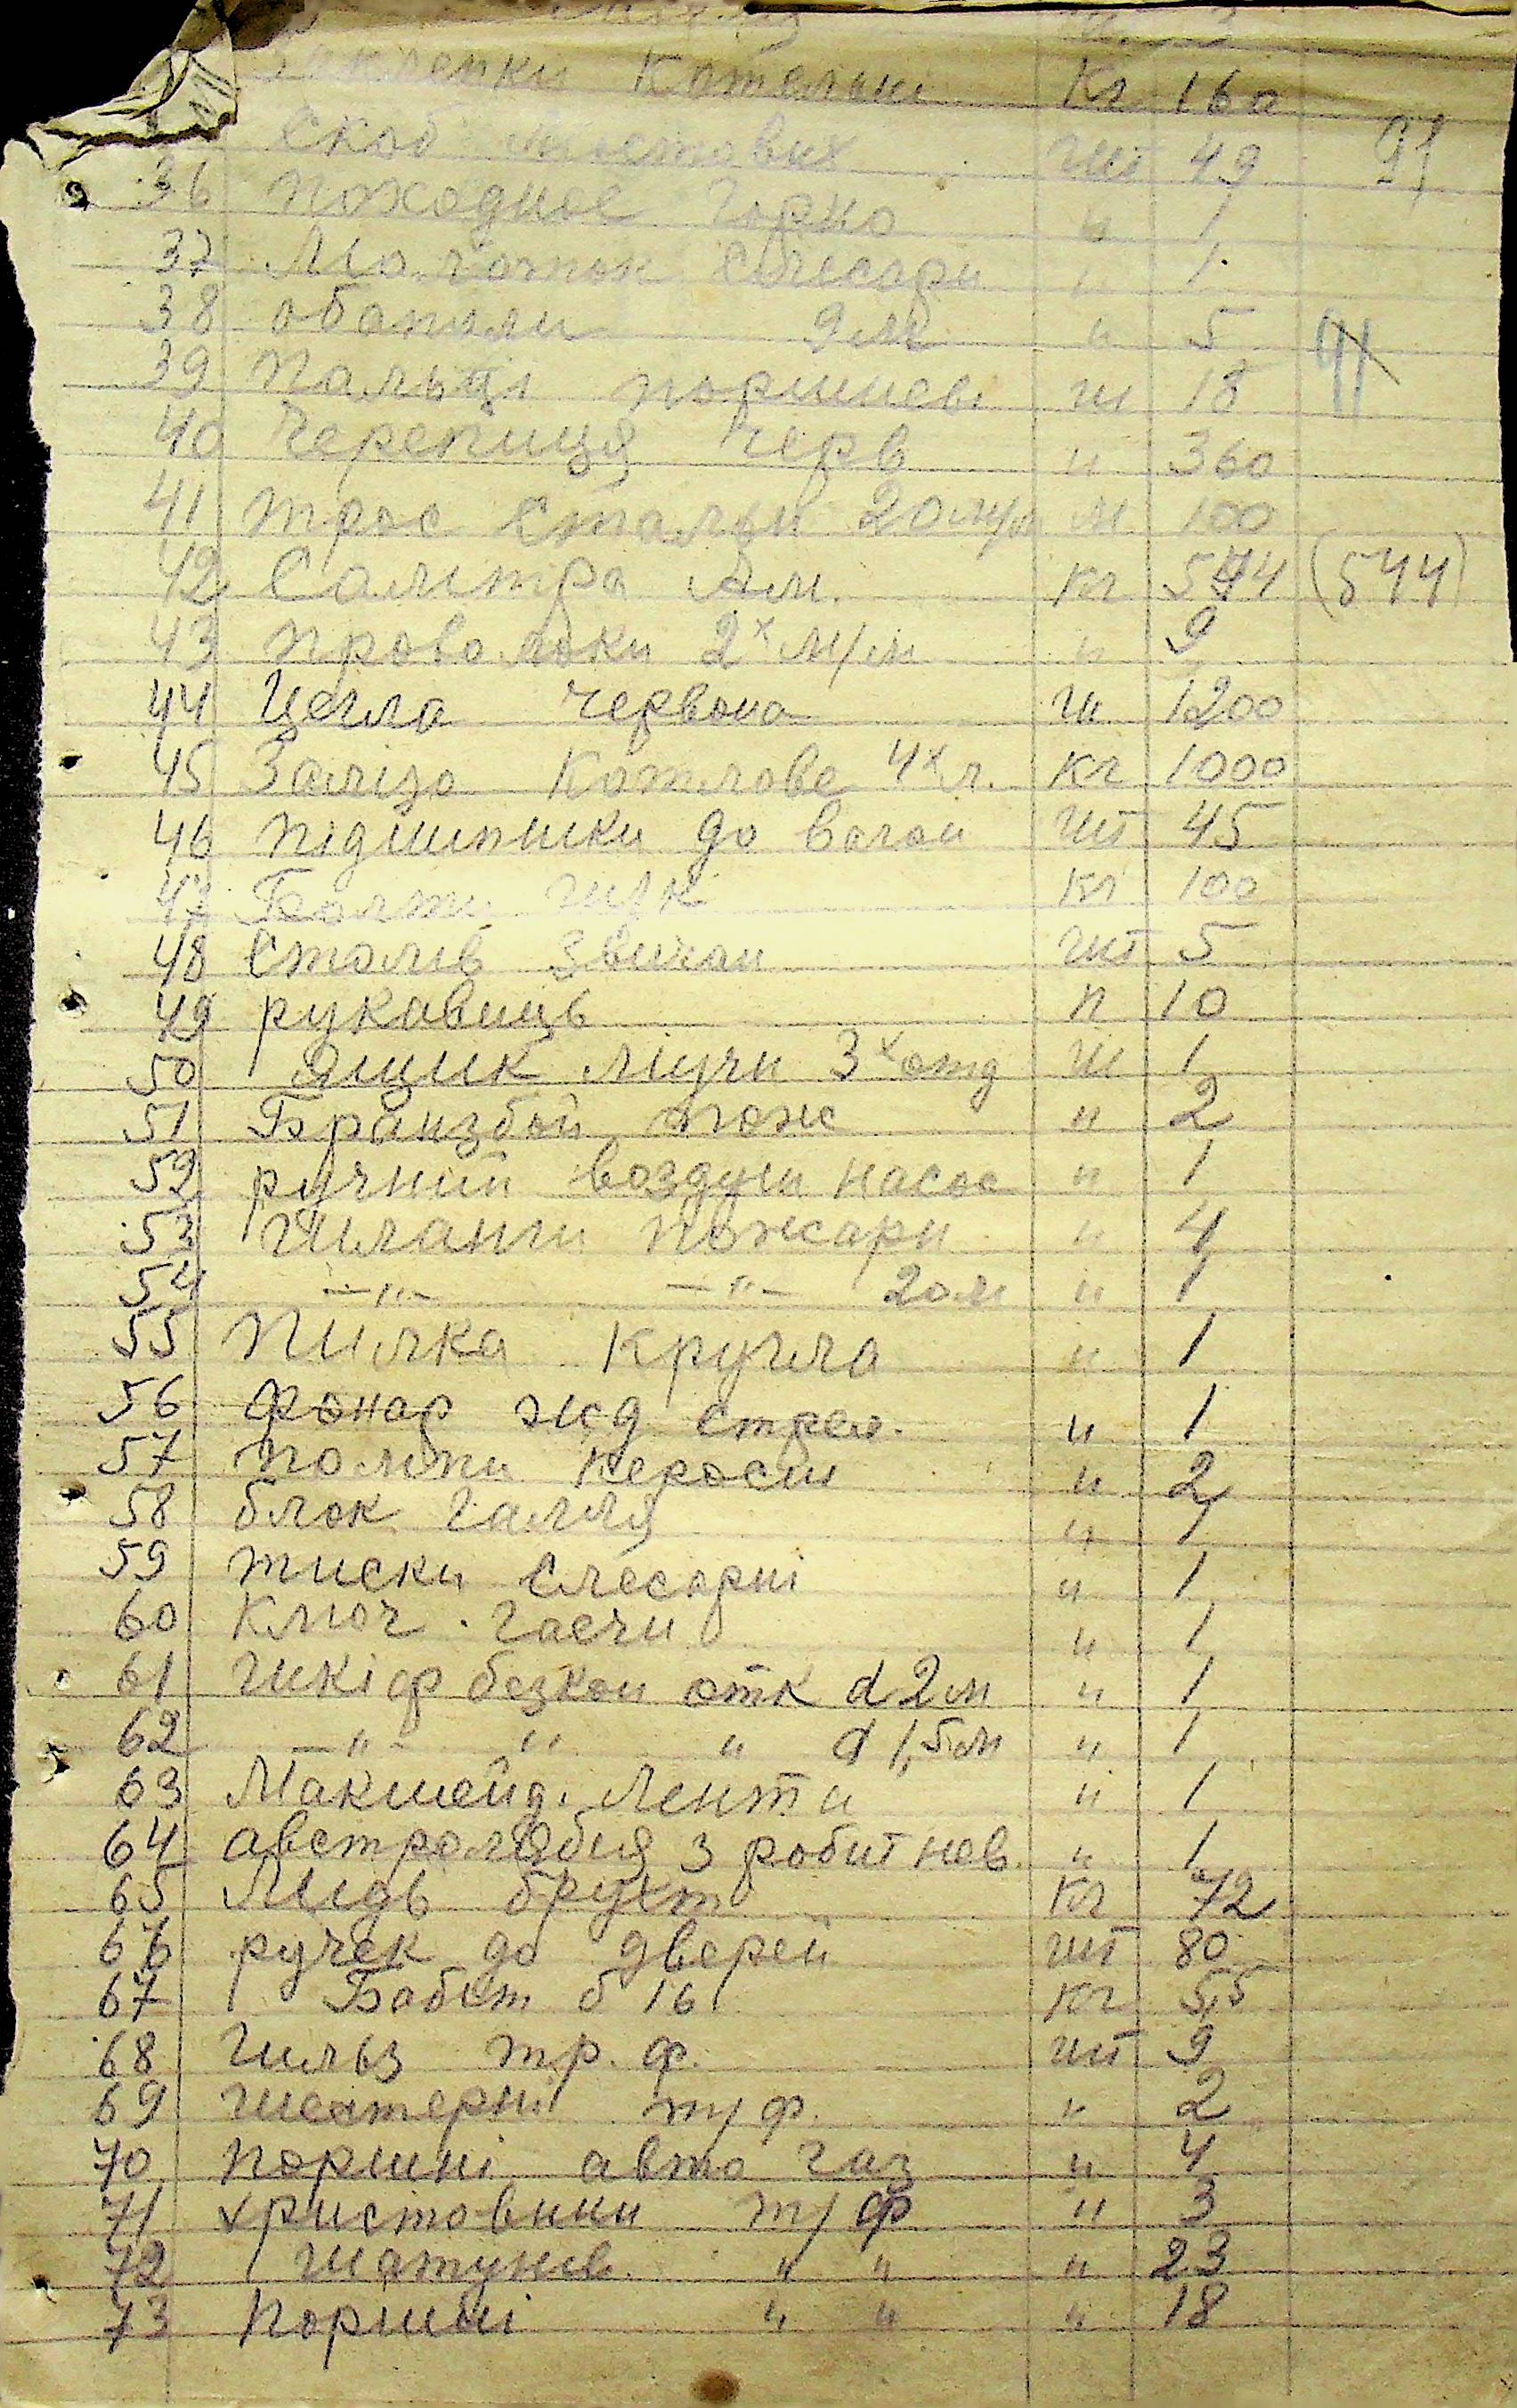 Заклепки Котельни Кг 160
Скоб мостових шт 49 91
36 походное горно " 1
37 Молоток Слесарн " 1
38 обаполи 9 м " 5
39 Пальці поршневі ш 18
40 Черепиця черв " 360
41 трос Стальн 20 м/м м 100
42 Салітра Ам. Кг 544 (544)
43 проволоки 2х м/м " 9
44 Цегла червона ш 1200
45 Залізо Котлове 4х л. Кг 1000
46 підшипники до вагон шт 45
47 Болти кг 100
48 Столів звичан шт 5
49 рукавиць п 10
50 Ящик 3х отд ш 1
51 Бранзбой пож " 2
52 ручний воздушн насос " 1
53 Шланги пожарн " 4
54 —"— —"— 20 м " 1
55 Пилка кругла " 1
56 Фонар жд стрел. " 1
57 помпи керосин " 2
58 блок галля " 1
59 тиски Слесарні " 1
60 Ключ гаечн " 1
61 шкіф безкон отк d 2 м " 1
62 —"— " " d 1,5 м " 1
63 Макшейд. Ленти " 1
64 австролябия з робит нев. " 1
65 Мидь брухт Кг 72
66 ручек до дверей шт 80
67 Бабіт б 16 Кг 5,5
68 Гильз тр. ф. шт 9
69 шестерні т/ф. " 2
70 поршні авто газ " 4
71 христовики т/ф " 3
72 Шатунів " " " 23
73 Поршні " " " 18